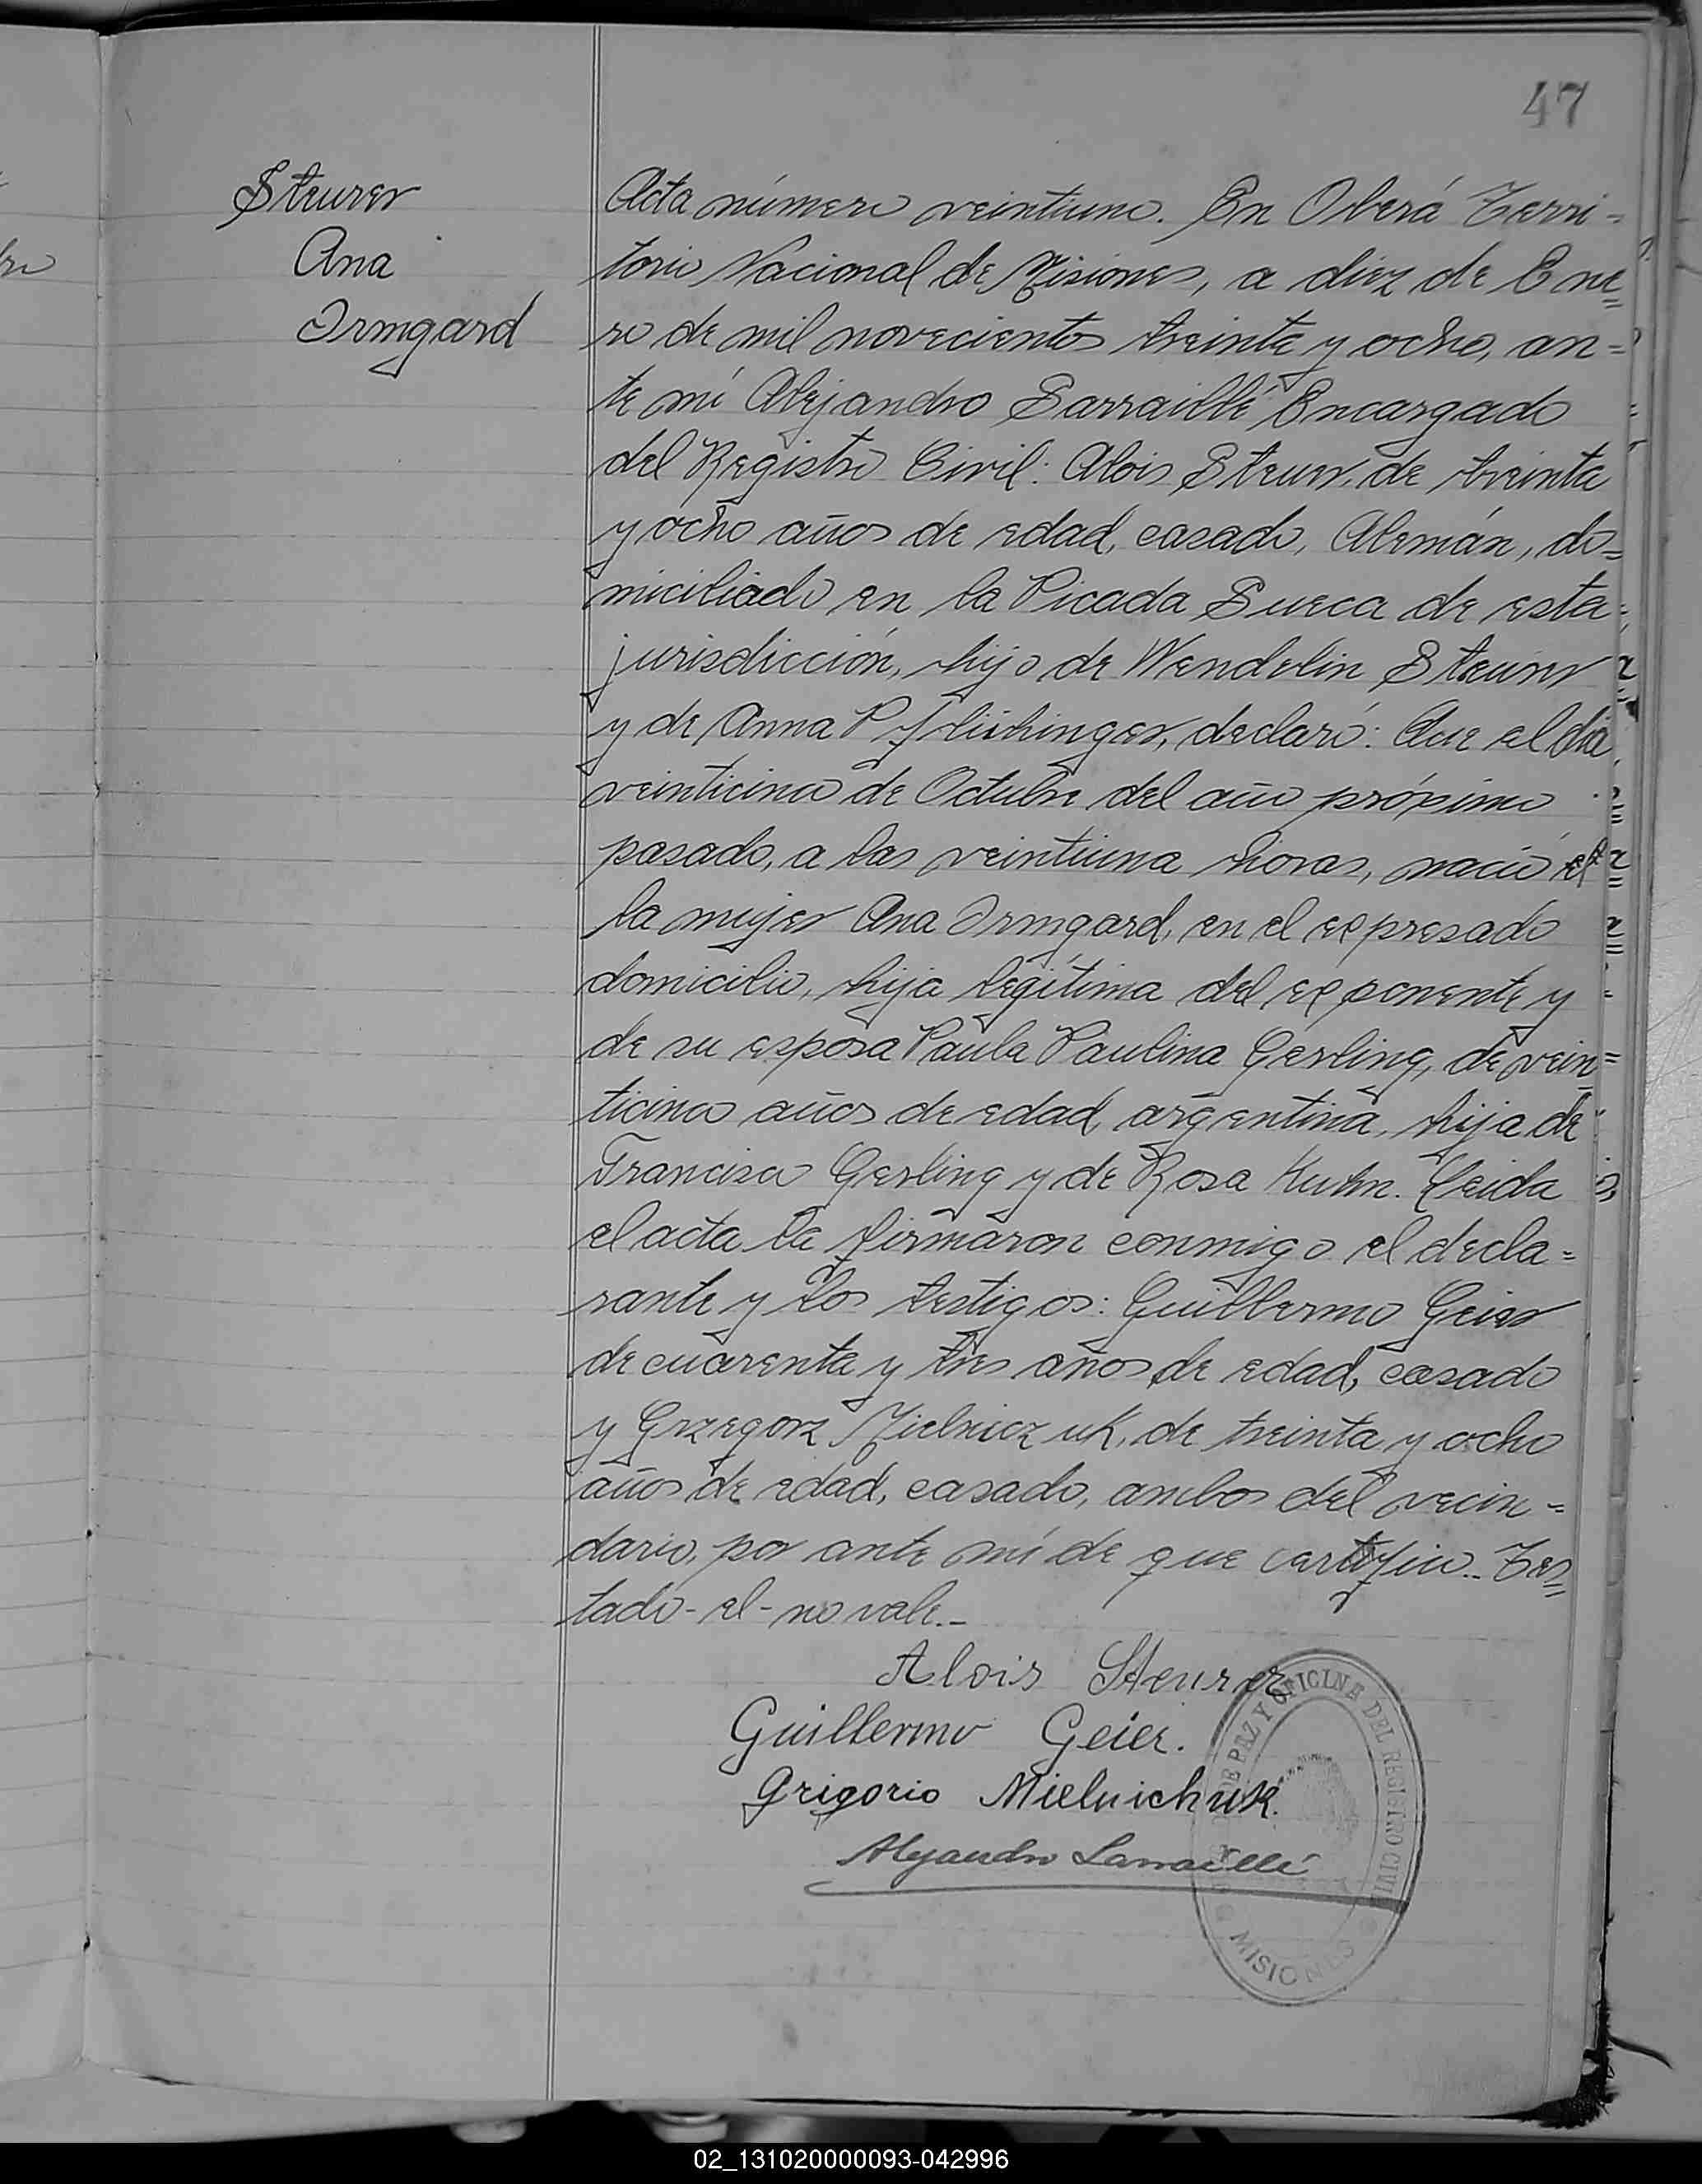 47
Steurer
Ana
Irmgard
Acta número veintiuno. En Oberá Terri=
torio Nacional de Misiones, a diez de Ene=
ro de mil novecientos treinta y ocho, an=
te mí Alejandro Sarraillé Encargado
del Registro Civil: Alois Steurer, de treinta
y ocho años de edad, casado, Alemán, do=
miciliado en la Picada Sueca de esta
jurisdicción, hijo de Wendelin Steurer
y de Anna declaró: Que el día
veinticinco de Octubre del año próximo
pasado, a las veintiuna horas, nació el
la mujer Ana Irmgard, en el expresado
domicilio, hija legítima del exponente y
de su esposa Paula Paulina Gerling, de vein=
ticinco años de edad, argentina, hija de
Francisco Gerling y de Rosa Kuhn. Leida
el acta la firmaron conmigo el decla=
rante y los testigos: Guillermo Geier
de cuarenta y tres años de edad, casado
y Grzegorz Mielniczuk, de treinta y ocho
años de edad, casado, ambos del vecin=
dario, por ante mí de que certifico.. Tes=
tado - el - no vale.-
Alois Steurer
Guillermo Geier.
Grigorio Mielnichuk.
Alejandro Sarraillé
DE PAZ Y OFICINA DEL REGISTRO CIVIL
MISIONES
02_131020000093-042996